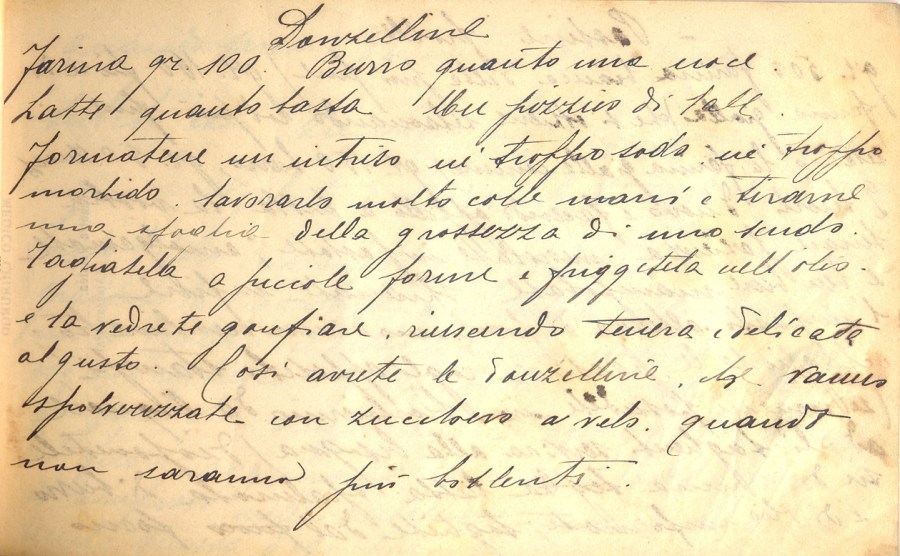 Donzelline
Farina gr. 100. Burro quanto una noce
Latte quanto basta Un pizzico di sale.
Formatene un intriso nè troppo sodo, nè troppo
morbido. lavorarlo molto colle mani e tirarne
una sfoglia della grossezza di uno scudo.
Tagliatela a piccole forme e friggetela nell'olio.
e la vedrete gonfiare, riuscendo tenera e delicata
al gusto. Così avrete le donzelline, che vanno
spolverizzate con zucchero a velo. quando
non saranno più bollenti.